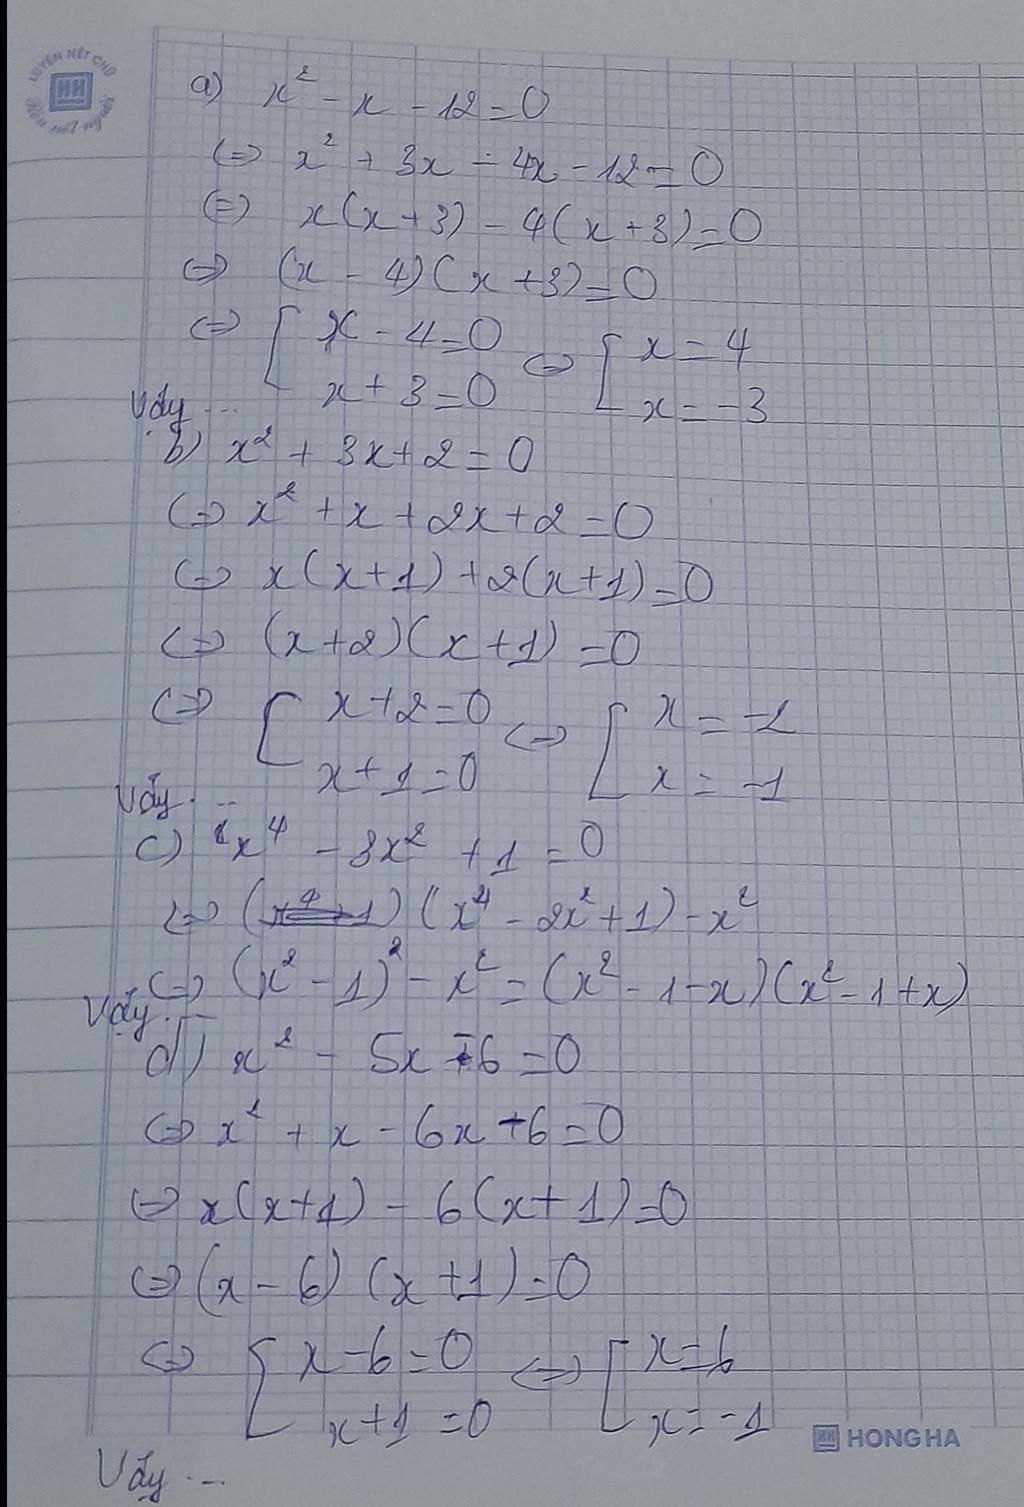 LUYỆN NÉT CHỮ
HH
a) x² - x - 12 = 0
<=> x² + 3x - 4x - 12 = 0
<=> x(x + 3) - 4(x + 3) = 0
<=> (x - 4)(x + 3) = 0
<=> [ x - 4 = 0 <=> [ x = 4
x + 3 = 0 x = -3
Vậy ...
b) x² + 3x + 2 = 0
<=> x² + x + 2x + 2 = 0
<=> x(x + 1) + 2(x + 1) = 0
<=> (x + 2)(x + 1) = 0
<=> [ x + 2 = 0 <=> [ x = -2
x + 1 = 0 x = -1
Vậy ...
c) x⁴ - 3x² + 1 = 0
<=> (x⁴ - 2x² + 1) - x²
<=> (x² - 1)² - x² = (x² - 1 - x)(x² - 1 + x)
Vậy ...
d) x² - 5x - 6 = 0
<=> x² + x - 6x - 6 = 0
<=> x(x + 1) - 6(x + 1) = 0
<=> (x - 6)(x + 1) = 0
<=> [ x - 6 = 0 <=> [ x = 6
x + 1 = 0 x = -1
HH HONG HA
Vậy ...